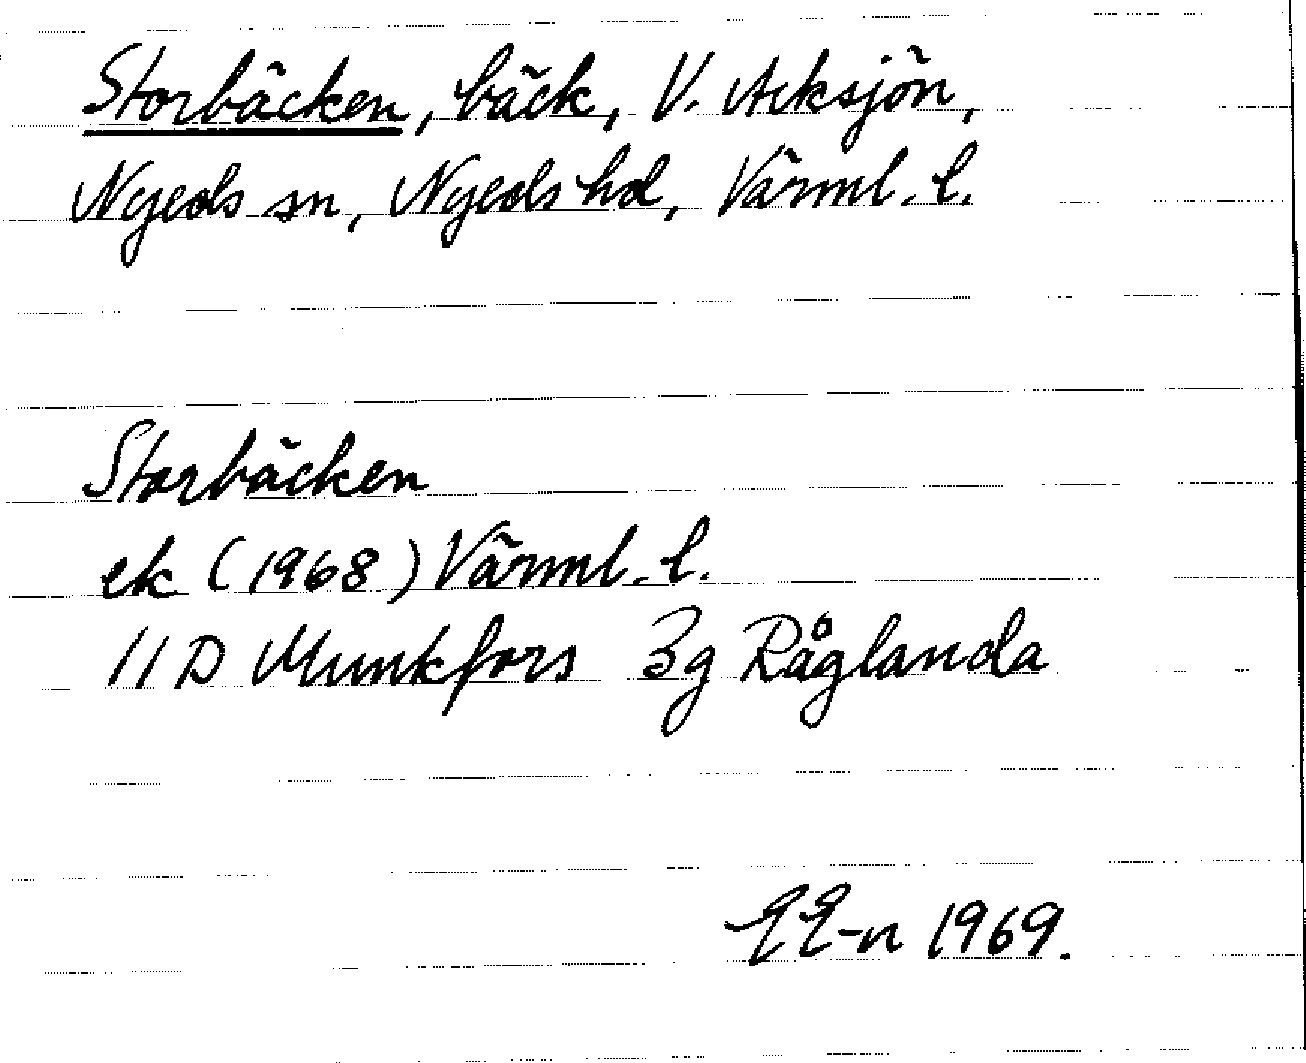 Storbäcken, bäck, V. Arksjön,
Nyeds sn, Nyeds hd, Värml. l.
Storbäcken
ek (1968) Värml. l.
11D Munkfors 3g Råglanda
1969.